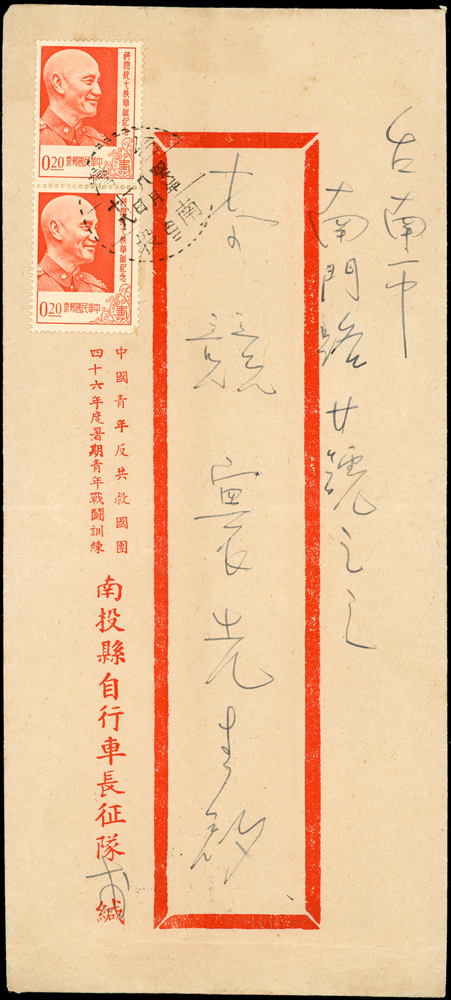 台南市
南門路廿號之
競寰先生
蔣總統七秩華誕紀念
中華民國郵票
0.20
蔣總統七秩華誕紀念
中華民國郵票
0.20
中國青年反共救國團
四十六年度暑期青年戰鬪訓練
南投縣自行車長征隊 緘